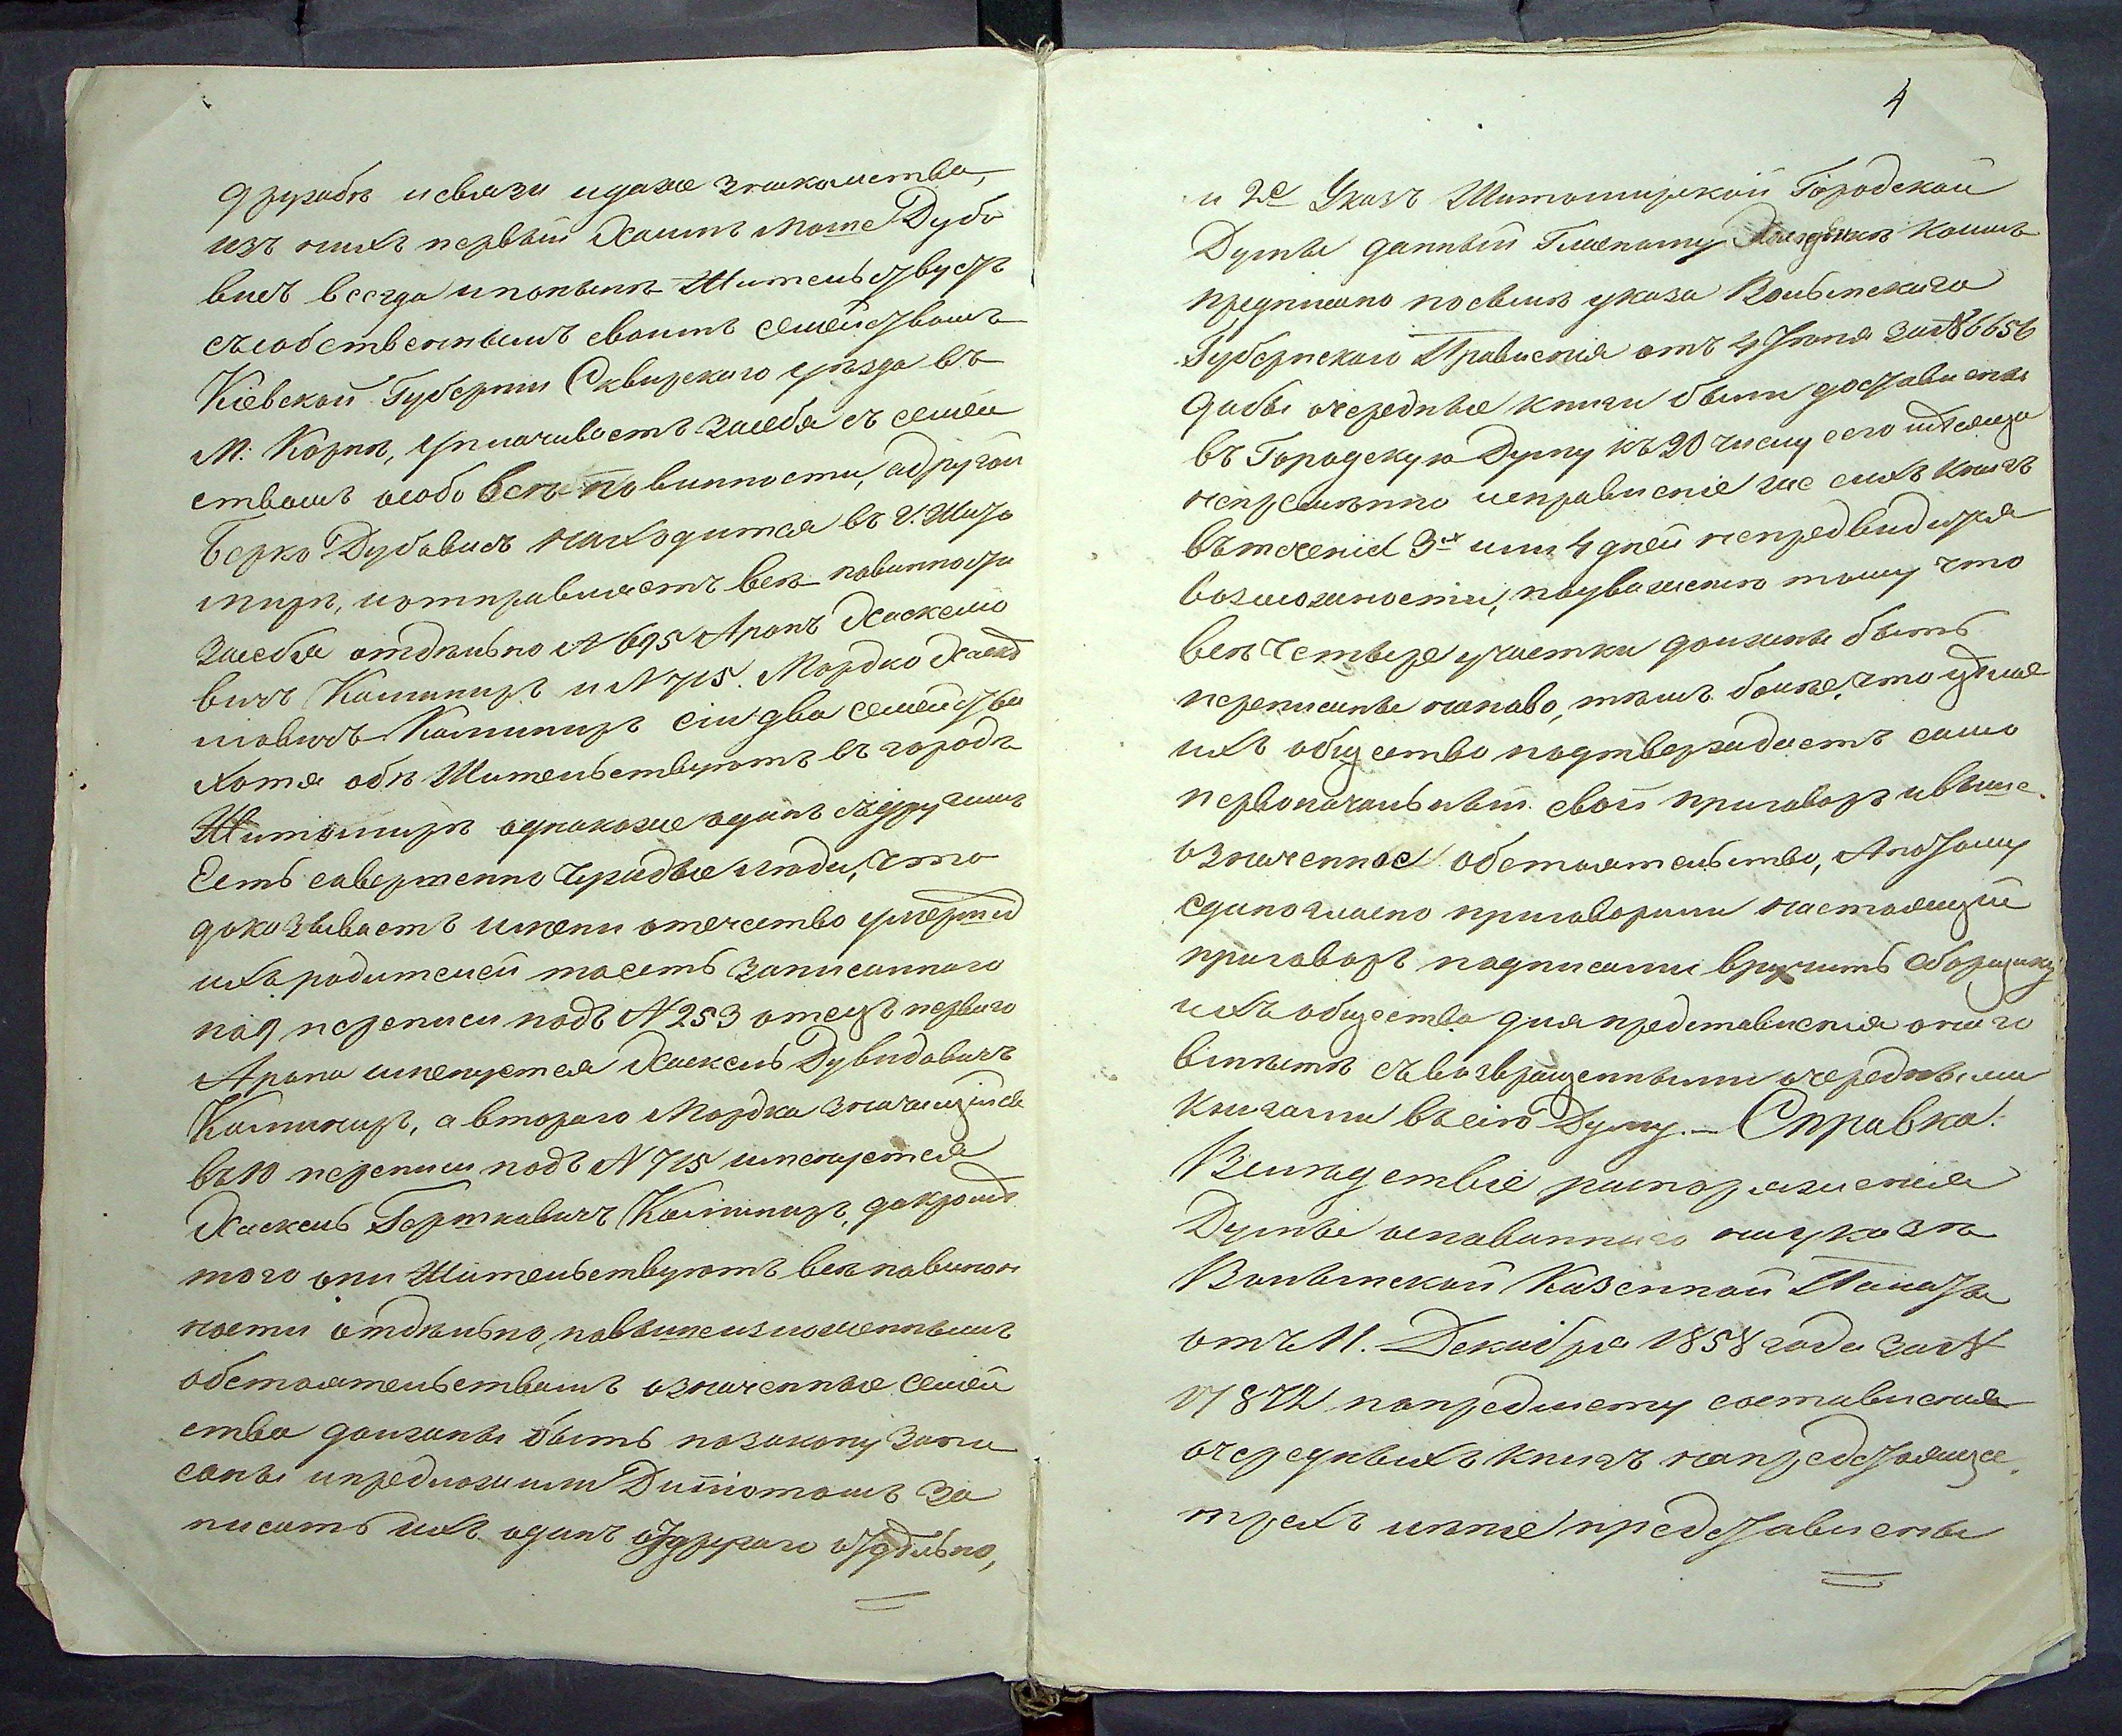 дружбѣ и связи и даже знакомства,
изъ нихъ первый Хаимъ Моше Дубо
вичъ всегда и понынѣ Жительствуетъ
съ собственнымъ своимъ семействомъ
Кіевской Губерніи Сквирского уѣзда въ
М: Корни, уплачиваетъ за себя съ семей
ствомъ особо всѣ повинности, а другой
Берко Дубовичъ находится въ г. Жито
мирѣ, и отправляетъ всѣ повинности
за себя отдѣльно N 695 Аронъ Хаскеле
вичъ Калиниръ и N 715. Мордко Хаске
левичъ Калиниръ сіи два семейства
хотя обѣ Жительствуютъ въ городѣ
Житомирѣ однакоже одинъ съ другимъ
есть совершенно чуждые люди, что
доказываетъ имени отечество умершихъ
ихъ родителей то есть записаннаго
по 9 переписи подъ N 253 отецъ перваго
Арона именуется Хаскель Дувидовичъ
Калиниръ, а втораго Мордка значащійся
въ 10 переписи подъ N 715 именуется
Хаскель Гершковичъ Калиниръ, да кромѣ
того они Жительствуютъ всѣ повин
ности отдѣльно, по вышеизложеннымъ
обстоятельствамъ означенные семей
ства должны быть по закону запи
саны и предложили Депутатамъ за
писать ихъ одинъ отъ другаго отдѣльно,
4
и 2е Указъ Житомирской Городской
Думы данный Гласному
предписано по силѣ указа Волынскаго
Губернскаго Правленія отъ 4 Іюня за N 6656
дабы очередные книги были доставлены
въ Городскую Думу къ 20 числу сего мѣсяца
непремѣнно исправленіе же сихъ книгъ
въ теченіи 3х или 4 дней непредвидится
возможности, по уваженію тому что
всѣ четыре участки должны быть
переписаны на ново, тѣмъ болѣе, что
ихъ общество подтверждаетъ само
первоначальный свой приговоръ и выше
означенное обстоятельство, А потому
единогласно приговорили настоящій
приговоръ подписали вручить сборщику
ихъ общества для представленія онаго
вмѣстѣ съ возвращенными очередными
книгами въ сію Думу. – Справка:
Вслѣдствіе распоряженія
Думы основаннаго на указѣ
Волынской Казенной Палаты
отъ 11. Декабря 1858 года за N
17872 по предмету составленія
очередныхъ книгъ на предстоящее
трехъ лѣтіе представлены